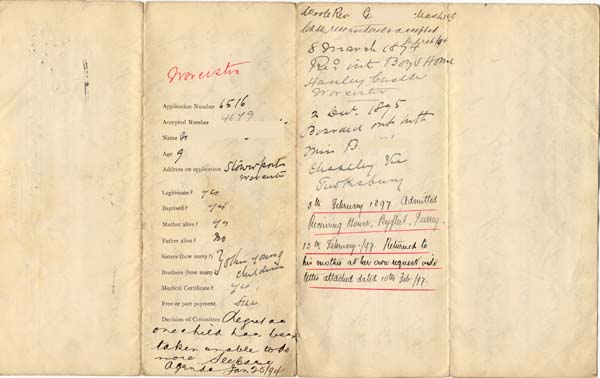 Worcester
Application Number 6516
Accepted Number 4679
Name
Age 9
Address on application Stourport
Worcester
Legitimate? yes
Baptised? yes
Mother alive? yes
Father alive? No
Sisters (how many?) 7 other young
Brothers (how many) children
Medical Certificate? Yes
Free or part payment Free
Decision of Committee Regret as
one child has been
taken unable to do
more. See Case
Agenda Jan 25/94
Wrote Rev. G
Case reconsidered & accepted
8 March 1894
Recd into Boys Home
Hanley Castle
Worcester
2 Dec. 1895
Boarded out with
Miss B.
Chaseley Via
Tewkesbury
5th February 1897 Admitted
Receiving House, Byfleet, Surrey.
13th February /97. Returned to
his mother at her own request vide
letter attached dated 10th Feb. /97.